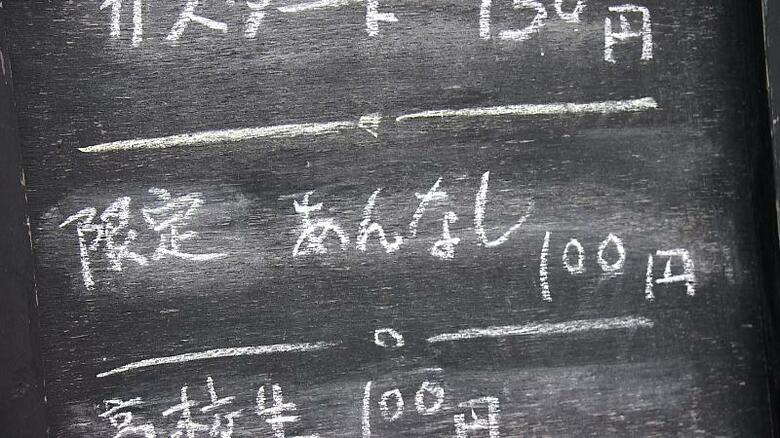 カスタード 150円
限定 あんなし 100円
高校生 100円